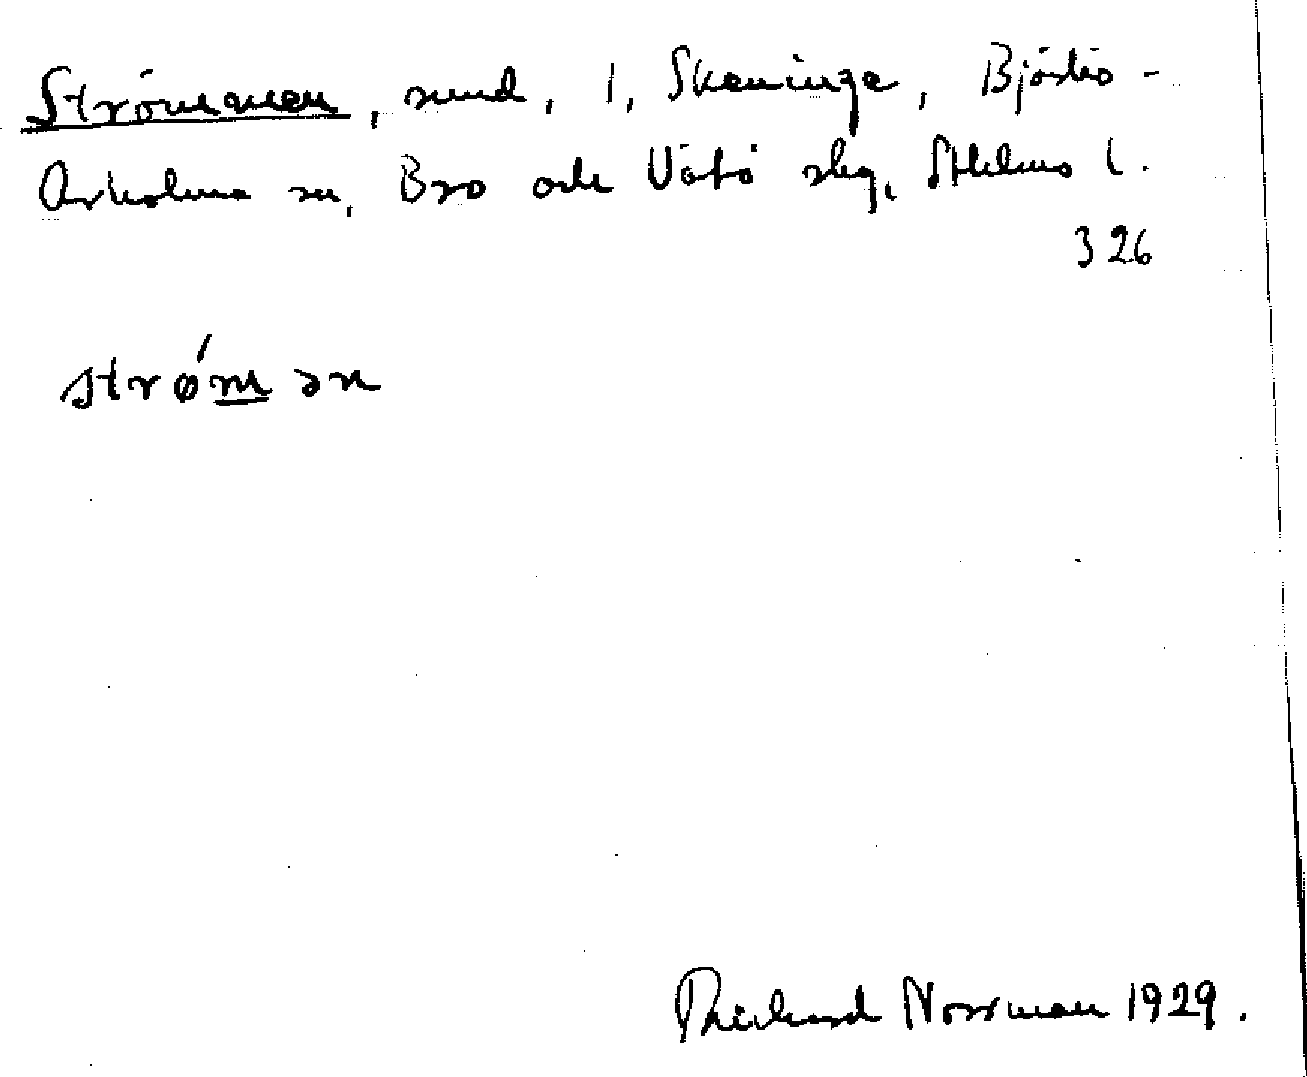 Strömmen, sund, 1, Skeninge, Björkö-
Arholma sn, Bro och Vätö skg, Sthlms l.
326
strǿm ən
Rickard Norrman 1929.